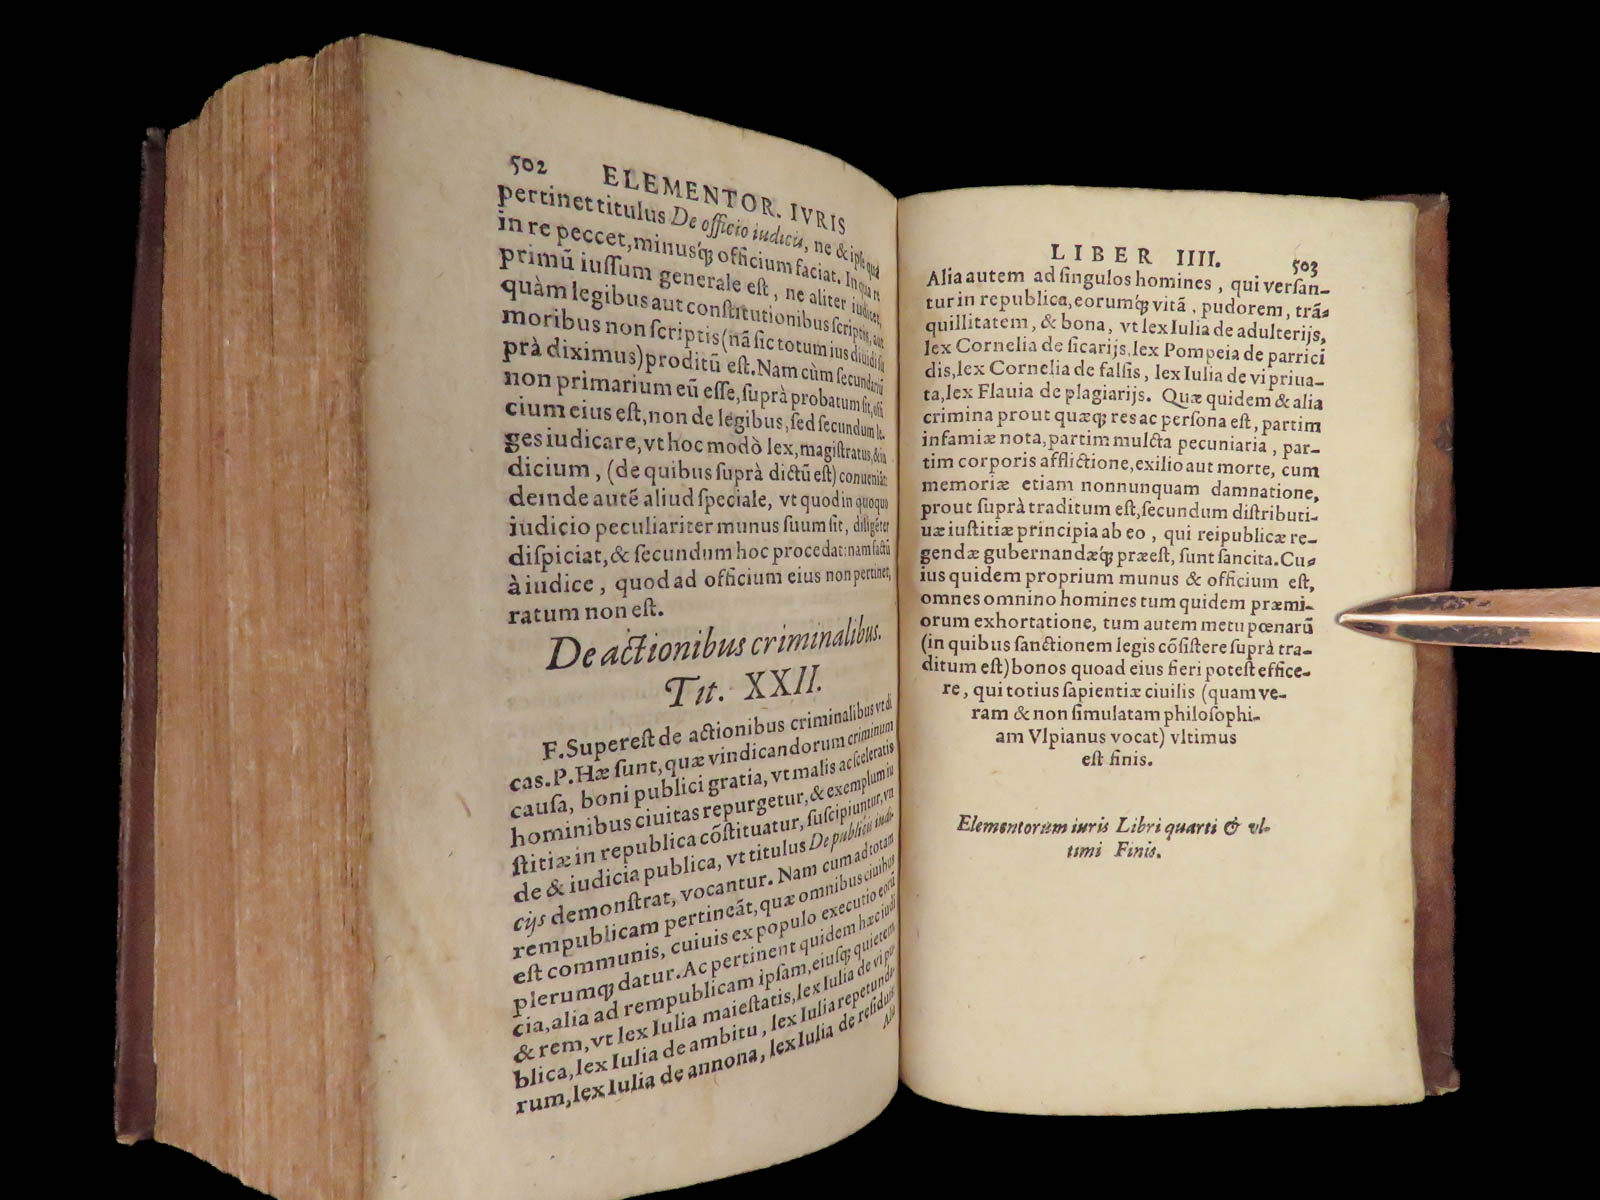 502 ELEMENTOR. IVRIS
pertinet titulus De officio iudicis, ne & ipse quâ
in re peccet, minusq́; officium faciat. In qua re
primũ iussum generale est, ne aliter iudicet,
quàm legibus aut constitutionibus scriptis, aut
moribus non scriptis (nã sic totum ius diuidi su
prà diximus) proditũ est. Nam cùm secundariũ
non primarium eũ esse, suprà probatum sit, offi
cium eius est, non de legibus, sed secundum le-
ges iudicare, vt hoc modò lex, magistratus, & iu
dicium, (de quibus suprà dictũ est) conueniãt:
deinde autẽ aliud speciale, vt quod in quoquo
iudicio peculiariter munus suum sit, diligẽter
dispiciat, & secundum hoc procedat: nam factũ
à iudice, quod ad officium eius non pertinet,
ratum non est.
De actionibus criminalibus.
Tit. XXII.
F. Superest de actionibus criminalibus vt di
cas. P. Hæ sunt, quæ vindicandorum criminum
causa, boni publici gratia, vt malis ac sceleratis
hominibus ciuitas repurgetur, & exemplum iu
stitiæ in republica cõstituatur, suscipiuntur, vn
de & iudicia publica, vt titulus De publicis iudi-
cijs demonstrat, vocantur. Nam cum ad totam
rempublicam pertineãt, quæ omnibus ciuibus
est communis, cuiuis ex populo executio eorũ
plerumq; datur. Ac pertinent quidem hæc iudi
cia, alia ad rempublicam ipsam, eiusq; quietem
& rem, vt lex Iulia maiestatis, lex Iulia de vi pu-
blica, lex Iulia de ambitu, lex Iulia repetunda-
rum, lex Iulia de annona, lex Iulia de residuis.
Alia
LIBER IIII. 503
Alia autem ad singulos homines, qui versan-
tur in republica, eorumq́; vitã, pudorem, trã-
quillitatem, & bona, vt lex Iulia de adulterijs,
lex Cornelia de sicarijs, lex Pompeia de parrici
dis, lex Cornelia de falsis, lex Iulia de vi priua-
ta, lex Flauia de plagiarijs. Quæ quidem & alia
crimina prout quæq; res ac persona est, partim
infamiæ nota, partim mulcta pecuniaria, par-
tim corporis afflictione, exilio aut morte, cum
memoriæ etiam nonnunquam damnatione,
prout suprà traditum est, secundum distributi-
uæ iustitiæ principia ab eo, qui reipublicæ re-
gendæ gubernandæq́; præest, sunt sancita. Cu-
ius quidem proprium munus & officium est,
omnes omnino homines tum quidem præmi-
orum exhortatione, tum autem metu pœnarũ
(in quibus sanctionem legis cõsistere suprà tra-
ditum est) bonos quoad eius fieri potest effice-
re, qui totius sapientiæ ciuilis (quam ve-
ram & non simulatam philosophi-
am Vlpianus vocat) vltimus
est finis.
Elementorum iuris Libri quarti & vl-
timi Finis.